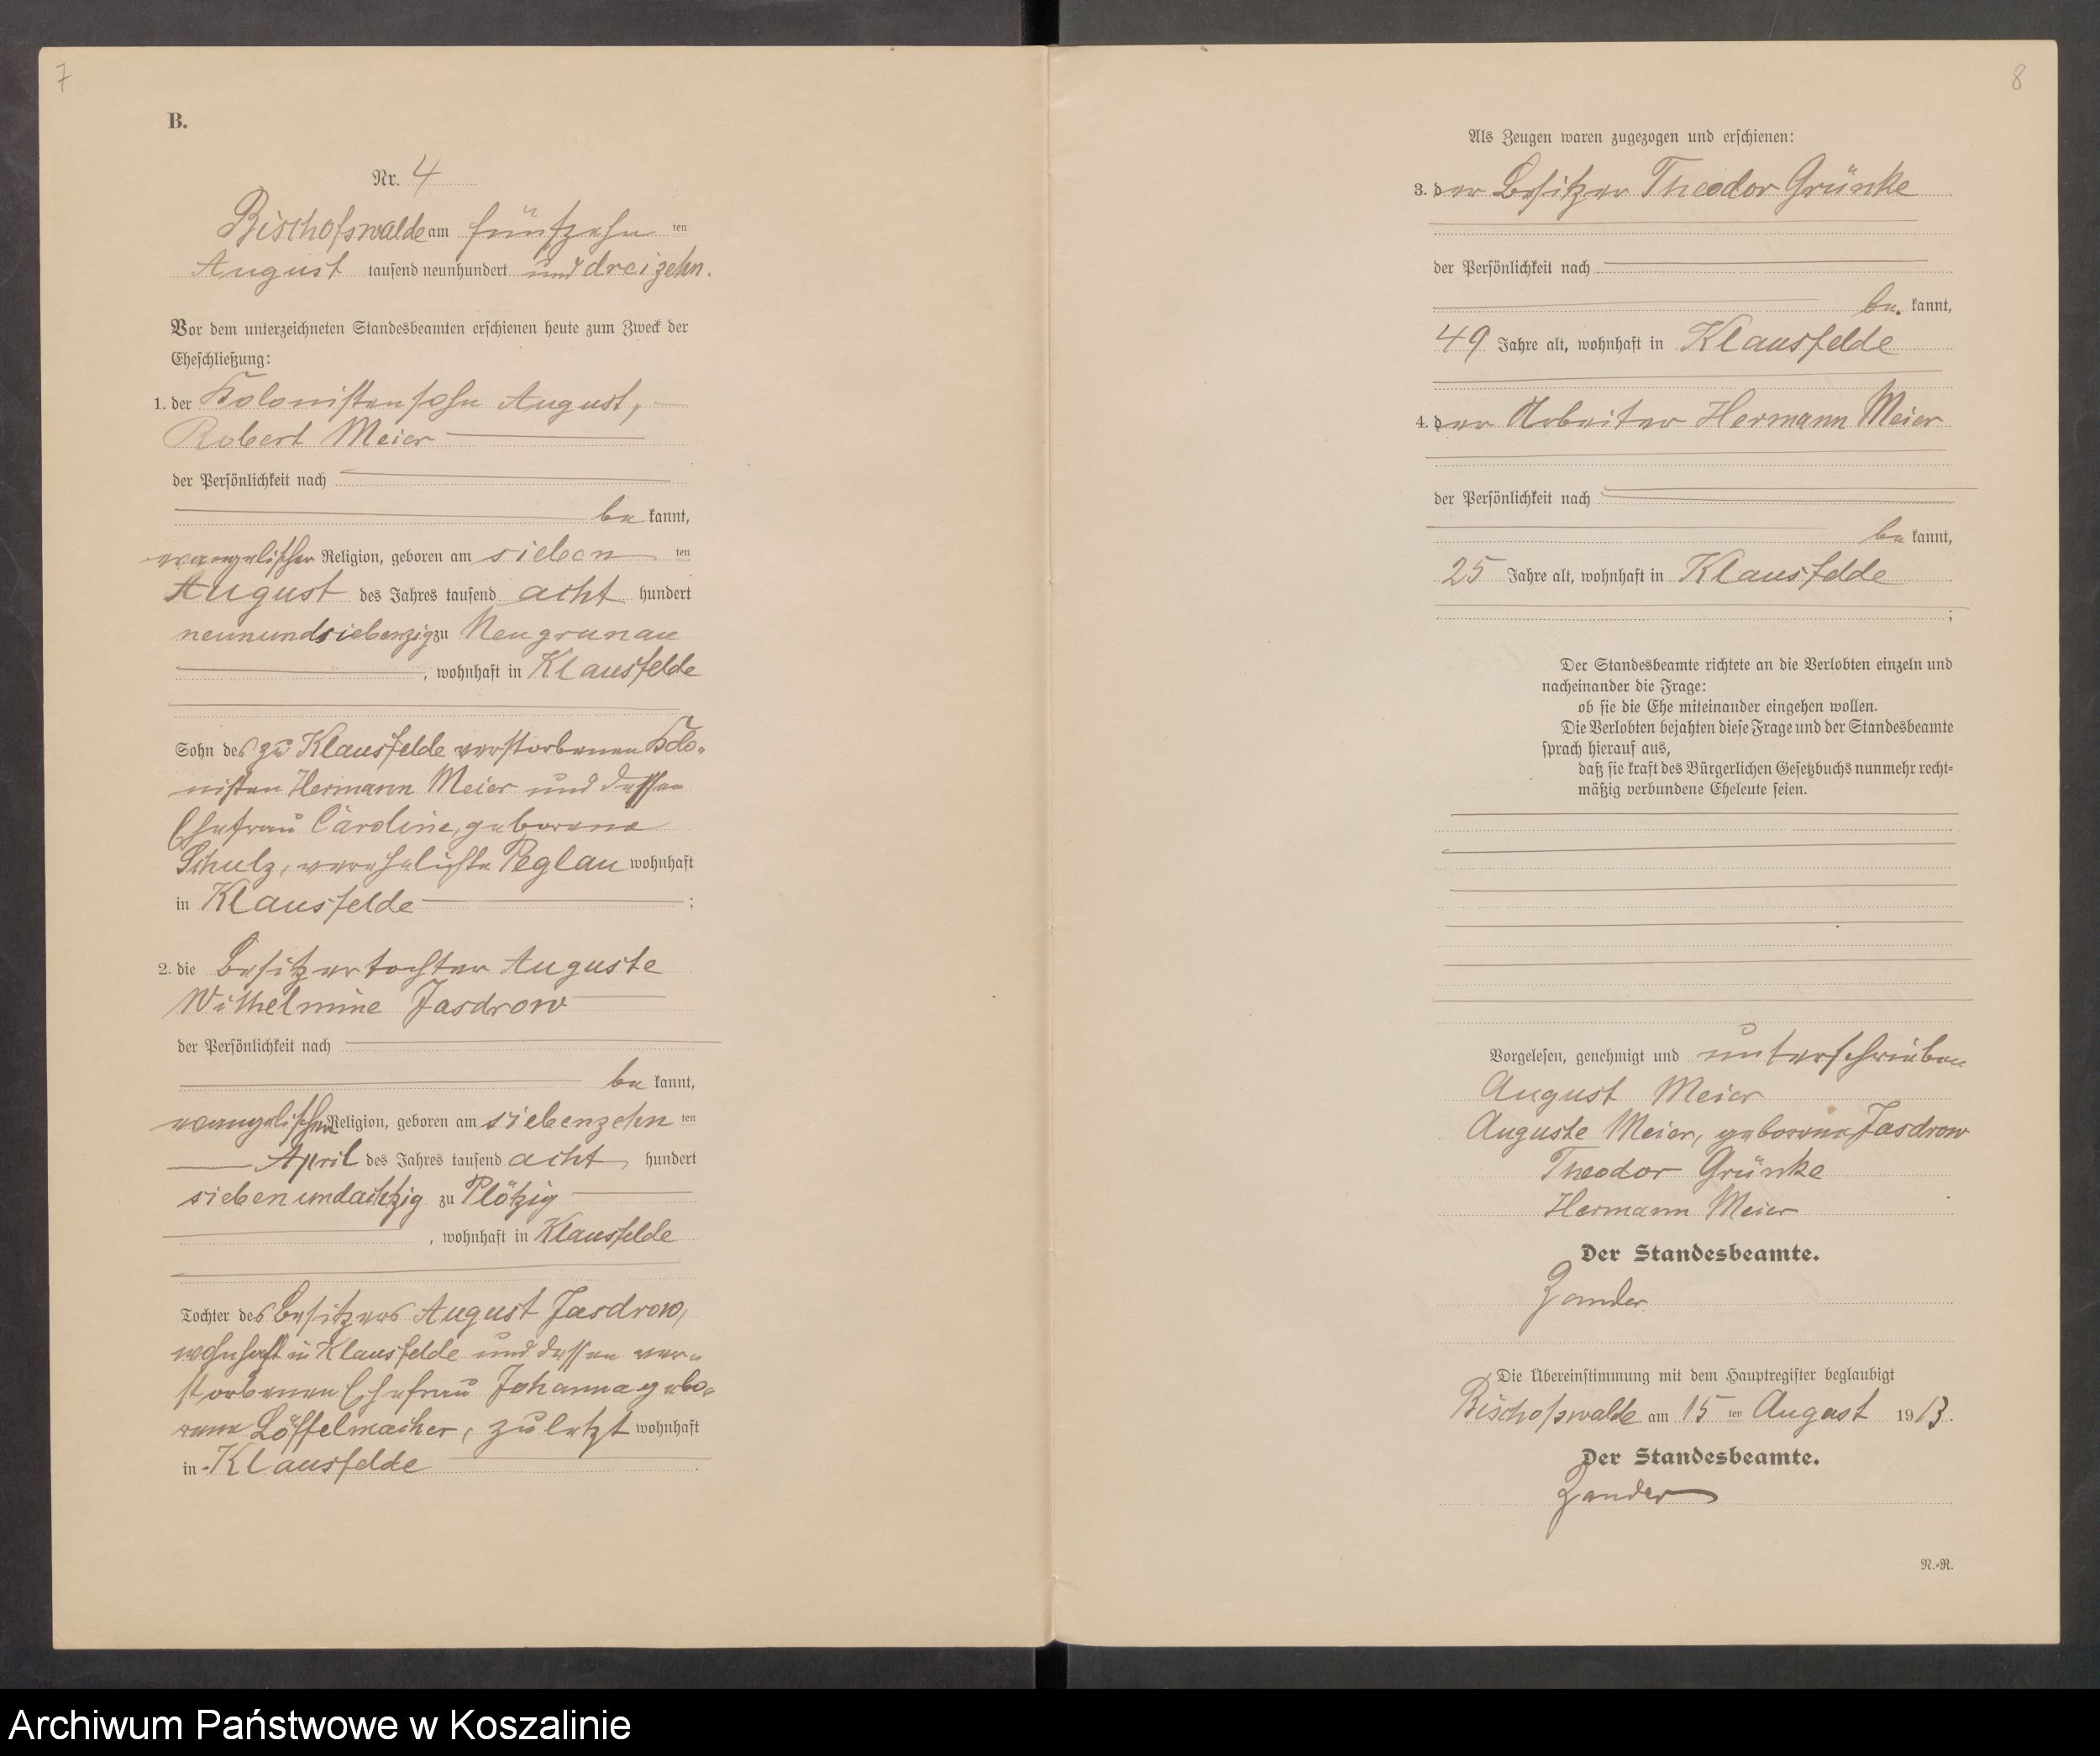 7
B.
Nr. 4
Bischofswalde am fünfzehn ten
August tausend neunhundert und dreizehn.
Vor dem unterzeichneten Standesbeamten erschienen heute zum Zweck der
Eheschließung:
1. der Kolonistensohn August,
Robert Meier
der Persönlichkeit nach
be kannt,
evangelischer Religion, geboren am sieben ten
August des Jahres tausend acht hundert
neunundsiebenzig zu Neugrunau
, wohnhaft in Klausfelde
Sohn des zu Klausfelde verstorbenen Kolo-
nisten Hermann Meier und dessen
Ehefrau Caroline, geborene
Schulz, verehelichte Peglau wohnhaft
in Klausfelde ;
2. die Besitzertochter Auguste
Wilhelmine Jasdrow
der Persönlichkeit nach
be kannt,
evangelischer Religion, geboren am siebenzehn ten
April des Jahres tausend acht hundert
siebenundachtzig zu Plötzig
, wohnhaft in Klausfelde
Tochter des Besitzers August Jasdrow,
wohnhaft in Klausfelde und dessen ver-
storbenen Ehefrau Johanna gebo-
rene Löffelmacher, zuletzt wohnhaft
in Klausfelde
8
Als Zeugen waren zugezogen und erschienen:
3. der Besitzer Theodor Grünke
der Persönlichkeit nach
be. kannt,
49 Jahre alt, wohnhaft in Klausfelde
4. der Arbeiter Hermann Meier
der Persönlichkeit nach
be kannt,
25 Jahre alt, wohnhaft in Klausfelde
;
Der Standesbeamte richtete an die Verlobten einzeln und
nacheinander die Frage:
ob sie die Ehe miteinander eingehen wollen.
Die Verlobten bejahten diese Frage und der Standesbeamte
sprach hierauf aus,
daß sie kraft des Bürgerlichen Gesetzbuchs nunmehr recht-
mäßig verbundene Eheleute seien.
Vorgelesen, genehmigt und unterschrieben
August Meier
Auguste Meier, geborene Jasdrow
Theodor Grünke
Hermann Meier
Der Standesbeamte.
Zander
Die Übereinstimmung mit dem Hauptregister beglaubigt
Bischofswalde am 15 ten August 1913.
Der Standesbeamte.
Zander
N.-R.
Archiwum Państwowe w Koszalinie